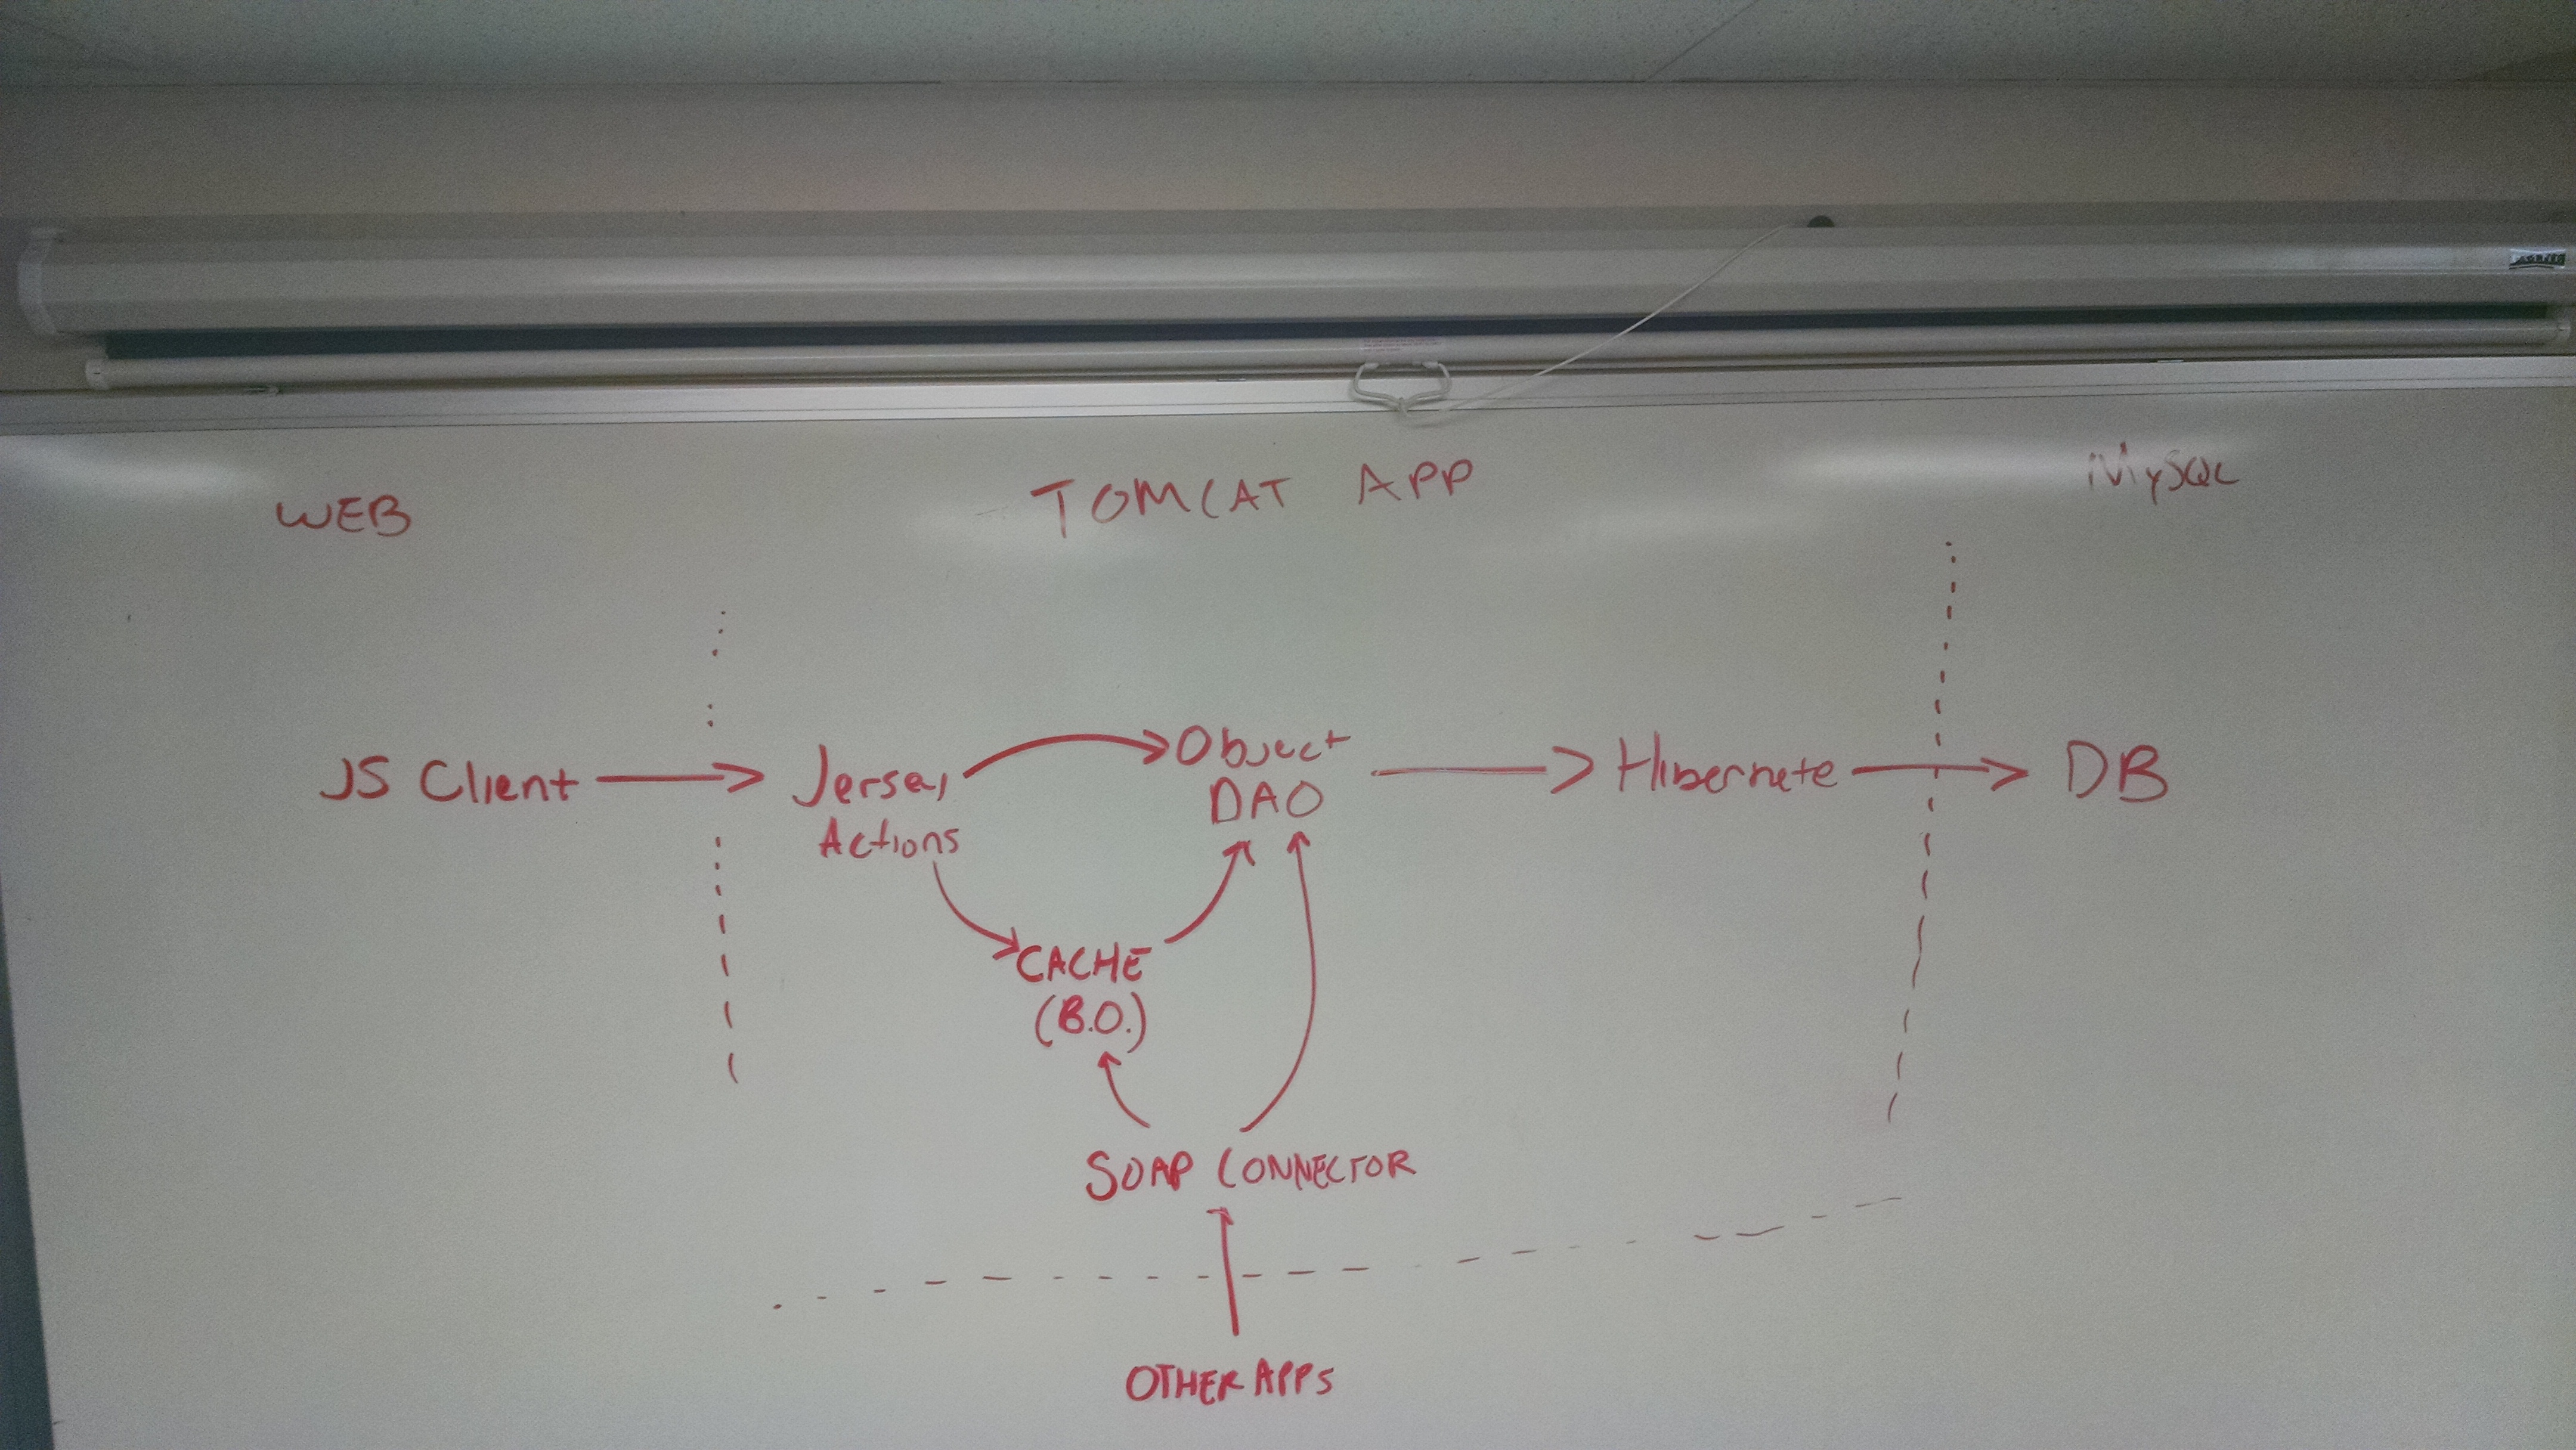 WEB
TOMCAT APP
MySQL
JS Client
Jersey
Actions
Object
DAO
Hibernate
DB
CACHE
(B.O.)
SOAP CONNECTOR
OTHER APPS